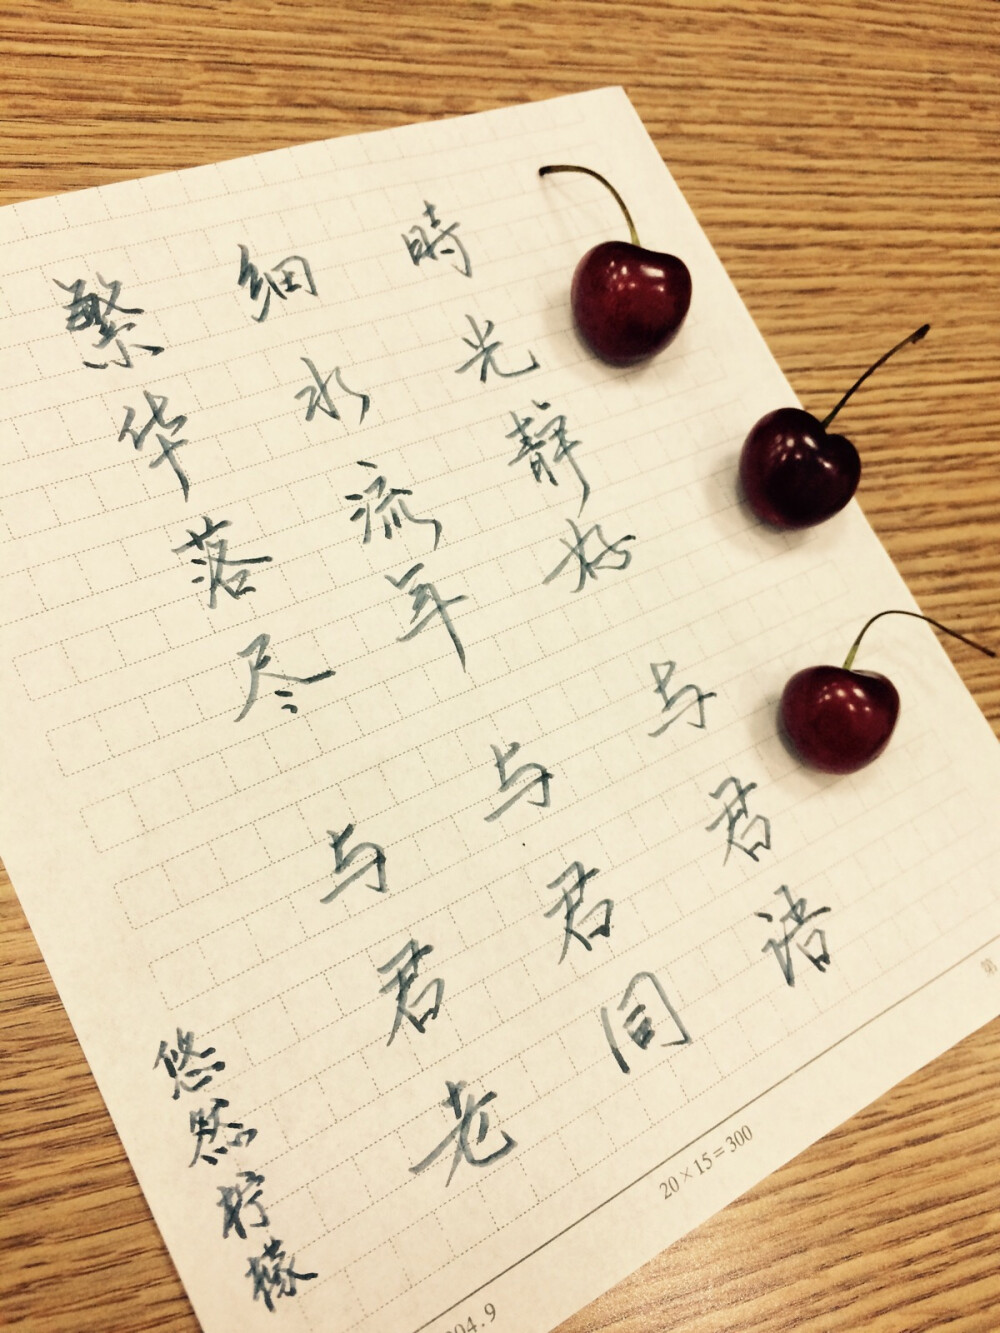 時光静好与君语
细水流年与君同
繁华落尽与君老
悠然柠檬
第
20×15=300
04.9